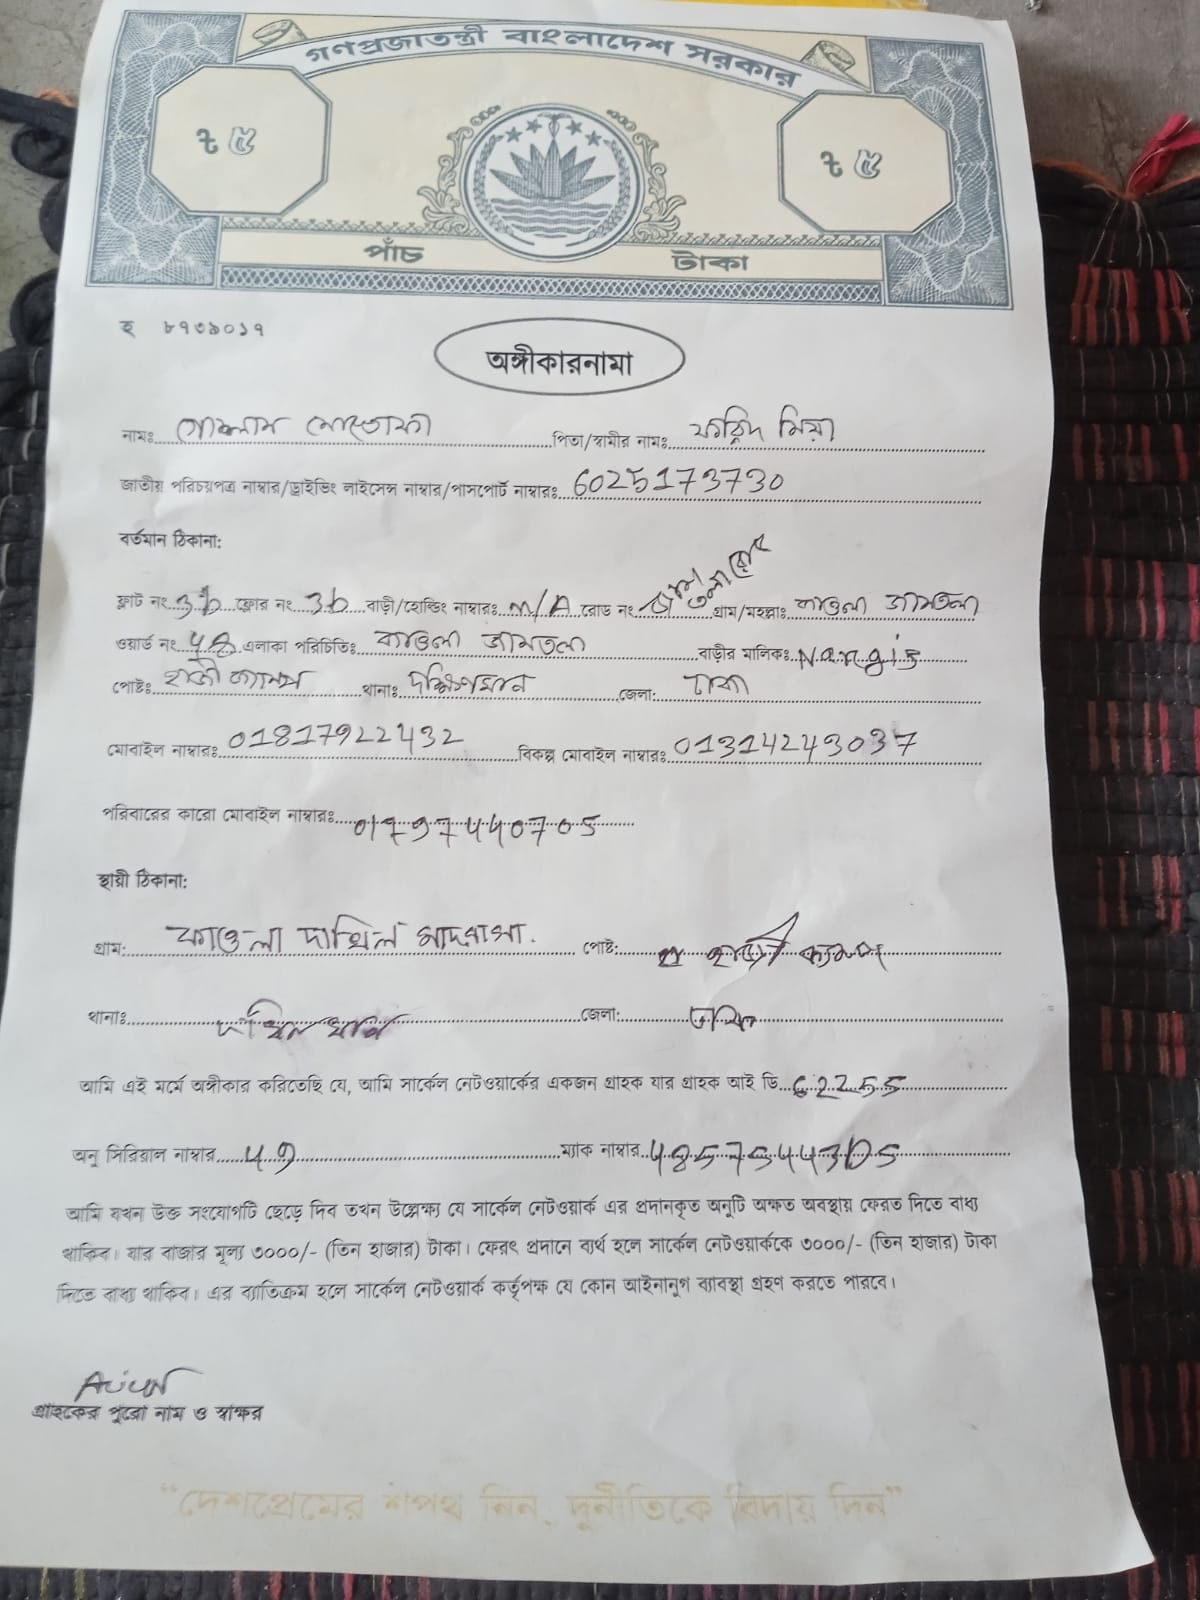 গণপ্রজাতন্ত্রী বাংলাদেশ সরকার
৳ ৫ ৳ ৫
পাঁচ টাকা
হ ৮৭৩৯০১৭
অঙ্গীকারনামা
নামঃ গোলাম মোস্তোফা পিতা/স্বামীর নামঃ ফরিদ মিয়া
জাতীয় পরিচয়পত্র নাম্বার/ড্রাইভিং লাইসেন্স নাম্বার/পাসপোর্ট নাম্বারঃ 6025173730
বর্তমান ঠিকানা:
ফ্লাট নং 3b ফ্লোর নং 3b বাড়ী/হোল্ডিং নাম্বারঃ N/A রোড নং জামতলা রোড গ্রাম/মহল্লাঃ কাওলা জামতলা
ওয়ার্ড নং এলাকা পরিচিতিঃ কাওলা জামতলা বাড়ীর মালিকঃ Nargis
পোষ্টঃ হাজী ক্যাম্প থানাঃ দক্ষিণখান জেলা: ঢাকা
মোবাইল নাম্বারঃ 01817922432 বিকল্প মোবাইল নাম্বারঃ 01314243037
পরিবারের কারো মোবাইল নাম্বারঃ 01797440705
স্থায়ী ঠিকানা:
গ্রাম: কাওলা দাখিল মাদরাসা. পোষ্ট: হাজী ক্যাম্প
থানাঃ দক্ষিনখান জেলা:
আমি এই মর্মে অঙ্গীকার করিতেছি যে, আমি সার্কেল নেটওয়ার্কের একজন গ্রাহক যার গ্রাহক আই ডি 62255
অনু সিরিয়াল নাম্বার ম্যাক নাম্বার 4857544305
আমি যখন উক্ত সংযোগটি ছেড়ে দিব তখন উল্লেক্ষ্য যে সার্কেল নেটওয়ার্ক এর প্রদানকৃত অনুটি অক্ষত অবস্থায় ফেরত দিতে বাধ্য
থাকিব। যার বাজার মূল্য ৩০০০/- (তিন হাজার) টাকা। ফেরৎ প্রদানে ব্যর্থ হলে সার্কেল নেটওয়ার্ককে ৩০০০/- (তিন হাজার) টাকা
দিতে বাধ্য থাকিব। এর ব্যাতিক্রম হলে সার্কেল নেটওয়ার্ক কর্তৃপক্ষ যে কোন আইনানুগ ব্যাবস্থা গ্রহণ করতে পারবে।
গ্রাহকের পুরো নাম ও স্বাক্ষর
“দেশপ্রেমের শপথ নিন, দুর্নীতিকে বিদায় দিন”